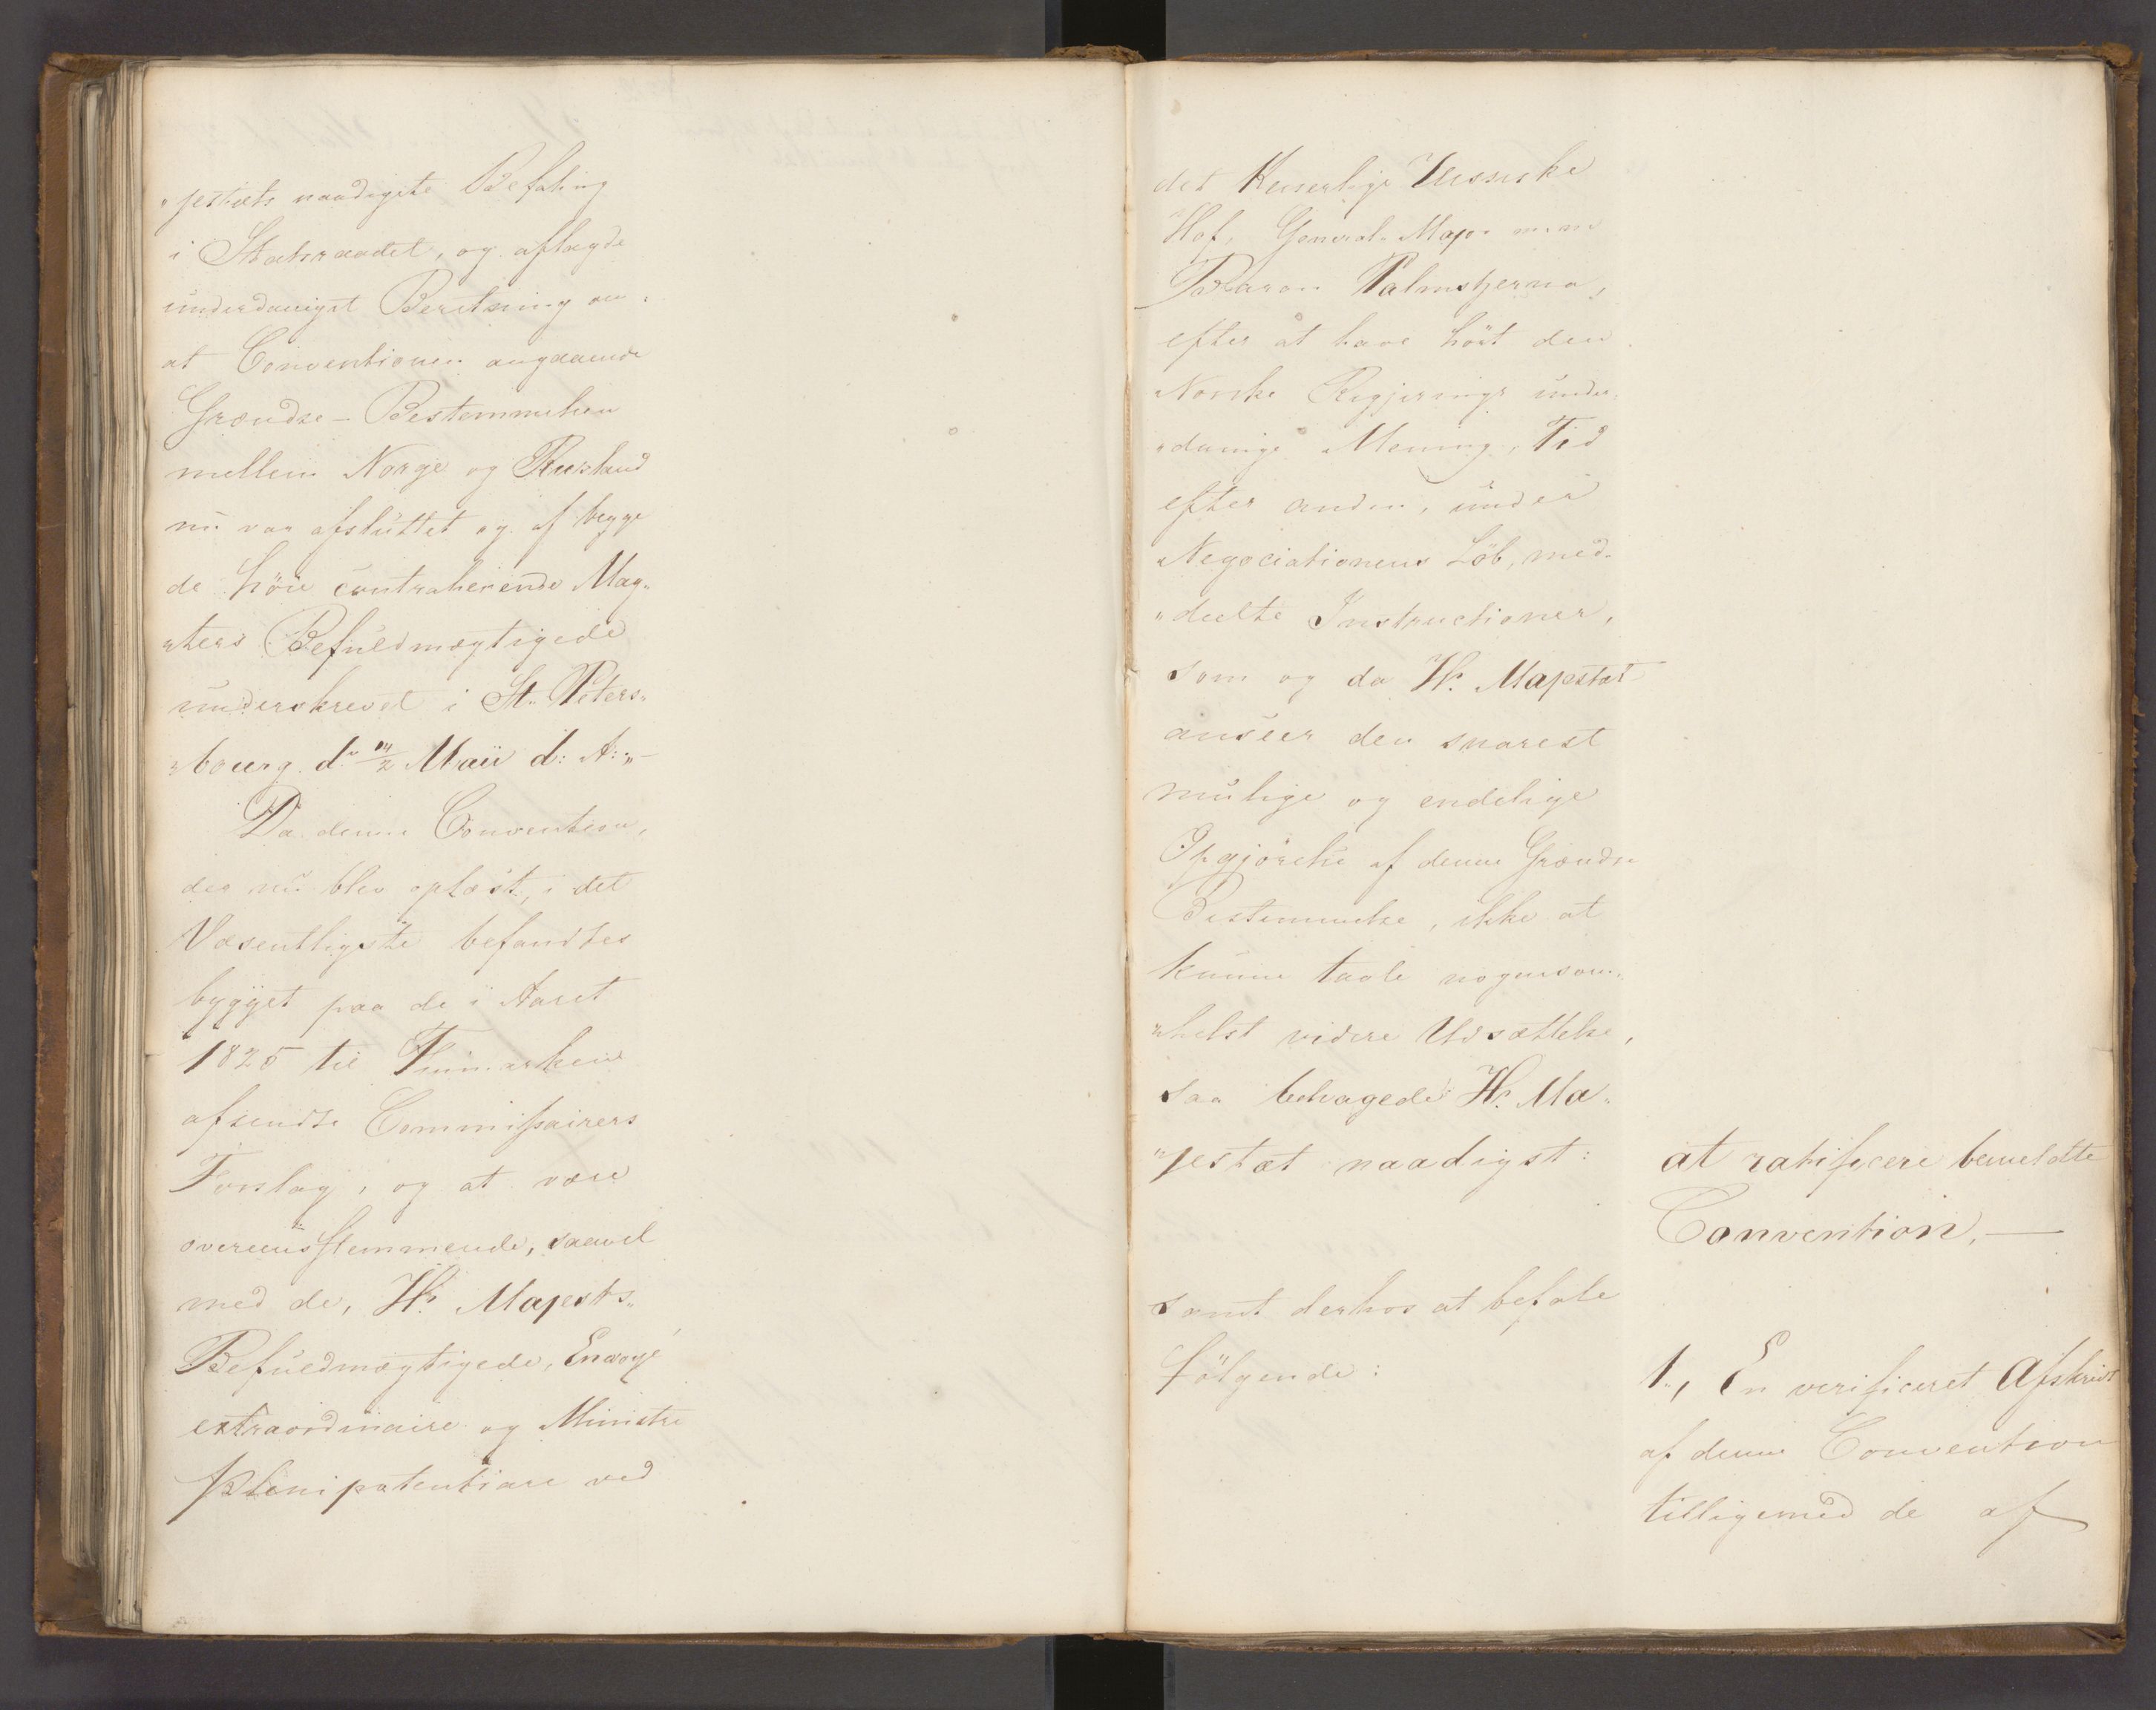 „jestæts naadigste Befaling
i Statsraadet, og aflagde
underdanigst Beretning om,
at Conventionen angaaende
Grændse-Bestemmelsen
mellem Norge og Rusland
nu var afsluttet og af begge
de höie contraherende Mag„
„ters Befuldmægtigede
underskrevet i St. Peters„
„bourg d. 14/2 Maii d: A:„—
Da denne Convention,
der nu blev oplæst, i det
Væsentligste befandtes
bygget paa de i Aaret
1825 til Finmarken
afsendte Commissairers
Forslag, og at være
overeensstemmende, saavel
med de, Hs. Majests„
Befuldmægtigede, Envoyé
extraordinaire og Ministre
plenipotentiare ved
det Keiserlige Russiske
Hof, General-Major m.m
Baron Palmstjerna,
efter at have hört den
Norske Regjerings under„
„danige Mening, Tid
efter anden, under
Negociationens Löb, med„
„deelte Instructioner,
som og da Hs. Majestæt
anseer den snarest
mulige og endelige
Opgjörelse af denne Grændse
Bestemmelse, ikke at
kunne taale nogensom„
„helst videre Udsættelse,
saa behagede Hs. Ma„
„jestæt naadigst:
at ratificere bemeldte
Convention,—
samt derhos at befale
fölgende:
1., En verificeret Afskrivt
af denne Convention
tilligemed de af